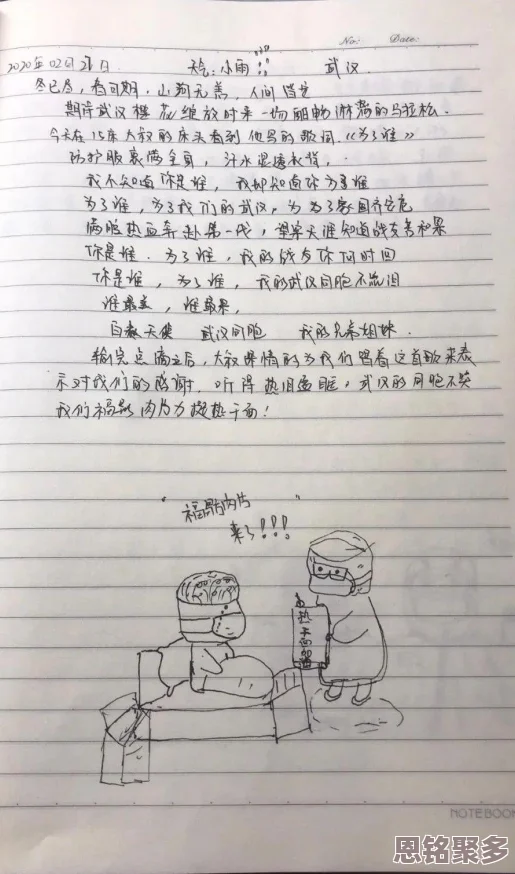 No: Date:
2020年02月21日 天气:小雨 武汉
冬已尽,春可期,山河无恙,人间皆安
期待武汉樱花绽放时来一场酣畅淋漓的马拉松.
今天在15床大叔的床头看到他写的歌词《为了谁》
防护服裹满全身,汗水湿透衣背,
我不知道你是谁,我却知道你为了谁
为了谁,为了我们的武汉,为了家国
满腔热血奔赴第一,望穿天涯知道战友
你是谁.为了谁,我的战友你何时回
你是谁,为了谁,我的武汉同胞不流泪
谁最美,谁最累,
白衣天使 武汉同胞 我的兄弟姐妹.
输完点滴之后,大叔深情的为我们唱着这首歌来表
示对我们的感谢.听得热泪盈眶,武汉的同胞不哭
我们福鼎肉片力挺热干面!
“福鼎肉片”
来了!!!
热干面
NOTEBOOK
恩铭聚多